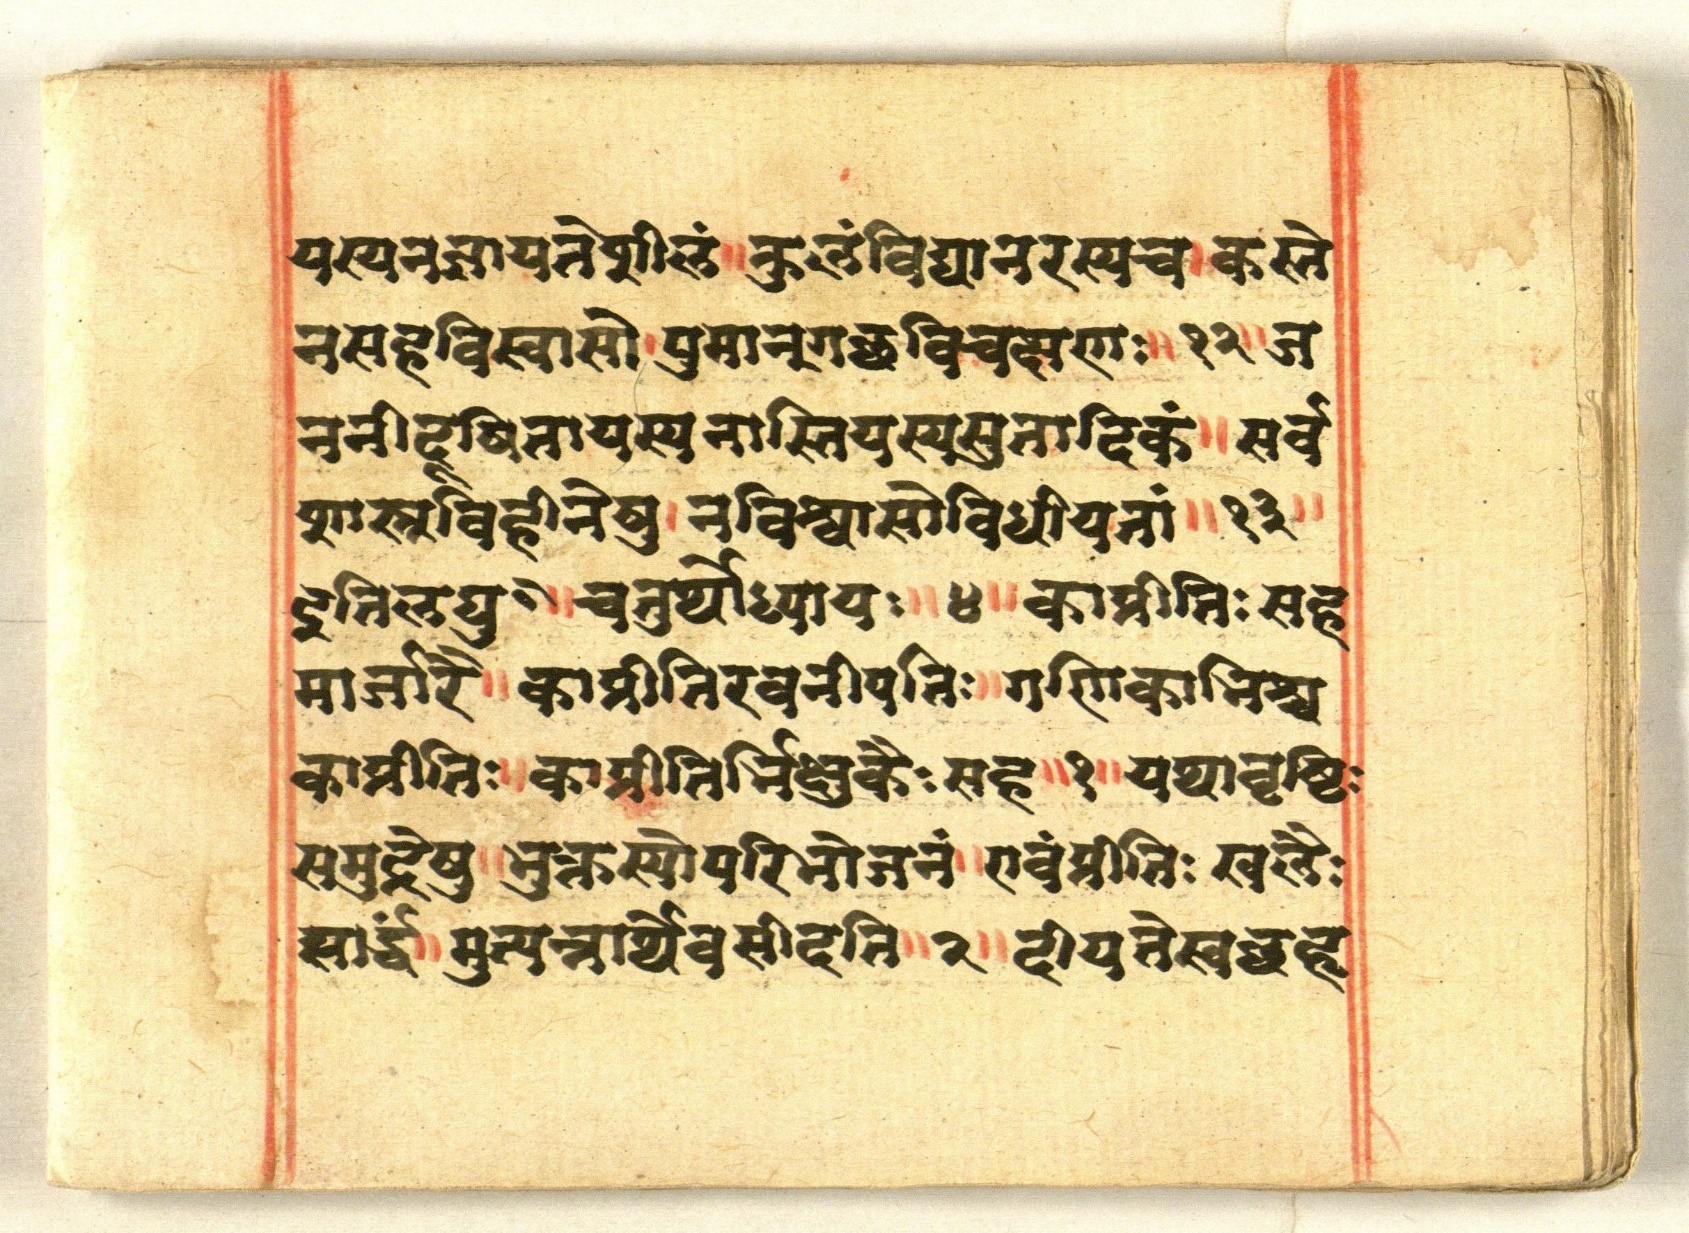 यस्यनज्ञायतेशीलं॥कुलंविद्यानरस्यच।कस्ते
नसहविस्वासो।पुमान्गछविचक्षणः॥१२॥ज
ननीदूषितायस्यनास्तियस्यसुतादिकं॥सर्व
शास्त्रविहीनेषु।नविश्वासोविधीयतां॥१३॥
इतिलघु॰॥चतुर्थोध्यायः॥४॥काप्रीतिःसह
मार्जारै॥काप्रीतिरवनीपतिः॥गणिकाभिश्च
काप्रीतिः॥काप्रीतिर्भिक्षुकैःसह॥१॥यथावृष्टिः
समुद्रेषु॥भुक्तस्योपरिभोजनं॥एवंप्रीतिःखलैः
सार्द्धं॥मुत्पन्नार्थेवसीदति॥२॥दीयतेस्वछहृ